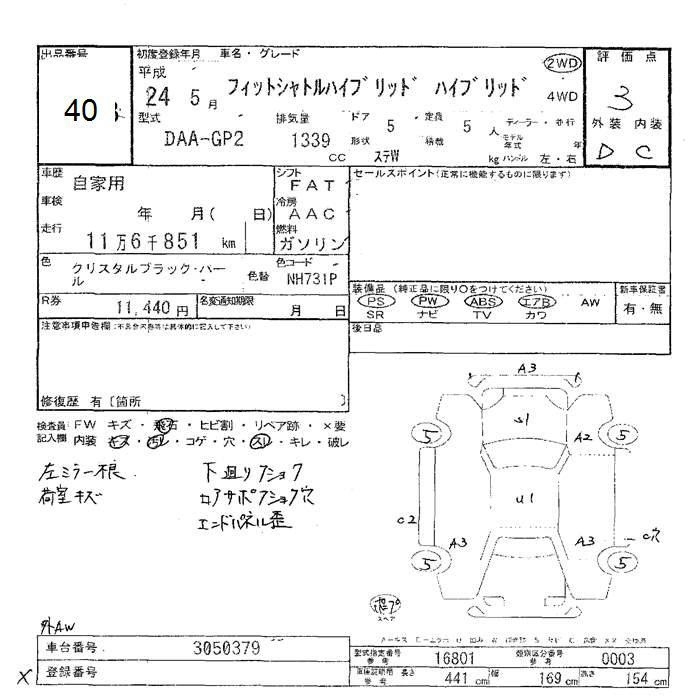 出品番号
40
初度登録年月 車名・グレード
平成
24 5 月 フィットシャトルハイブリッド ハイブリッド
2WD
4WD
評価点
3
外装 内装
D C
型式 排気量 ドア 定員 ディーラー・並行
DAA-GP2 1339 5 5 人
CC 形状 ステW 積載 kg
モデル年式 年
ハンドル 左・右
車歴
自家用
シフト
FAT
セールスポイント(正常に機能するものに限ります)
車検
年 月( 日)
冷房
AAC
走行
11万6千851 km
燃料
ガソリン
色
クリスタルブラック・パール
色替
色コード
NH731P
装備品 (純正品に限り○をつけてください)
PS PW ABS エアB AW
SR ナビ TV カワ
新車保証書
有・無
R券
11,440 円
名変通知期限
月 日
後日品
注意事項申告欄(不具合内容等は具体的に記入して下さい)
修復歴 有〔箇所 〕
検査員 FW キズ・飛石・ヒビ割・リペア跡・×要
記入欄 内装 キズ・汚レ・コゲ・穴・スレ・キレ・破レ
左ミラー根
荷室キズ
下廻りフショク
ロアサポフショク穴
エンドパネル歪
A3
S1
5
5
A2
U1
C2
A3
A3
C穴
5
5
スペア
外AW
車台番号
3050379
X
登録番号
型式指定番号
参考
16801
類別区分番号
参考
0003
長さ
参考
441 cm
幅
169 cm
高さ
154 cm